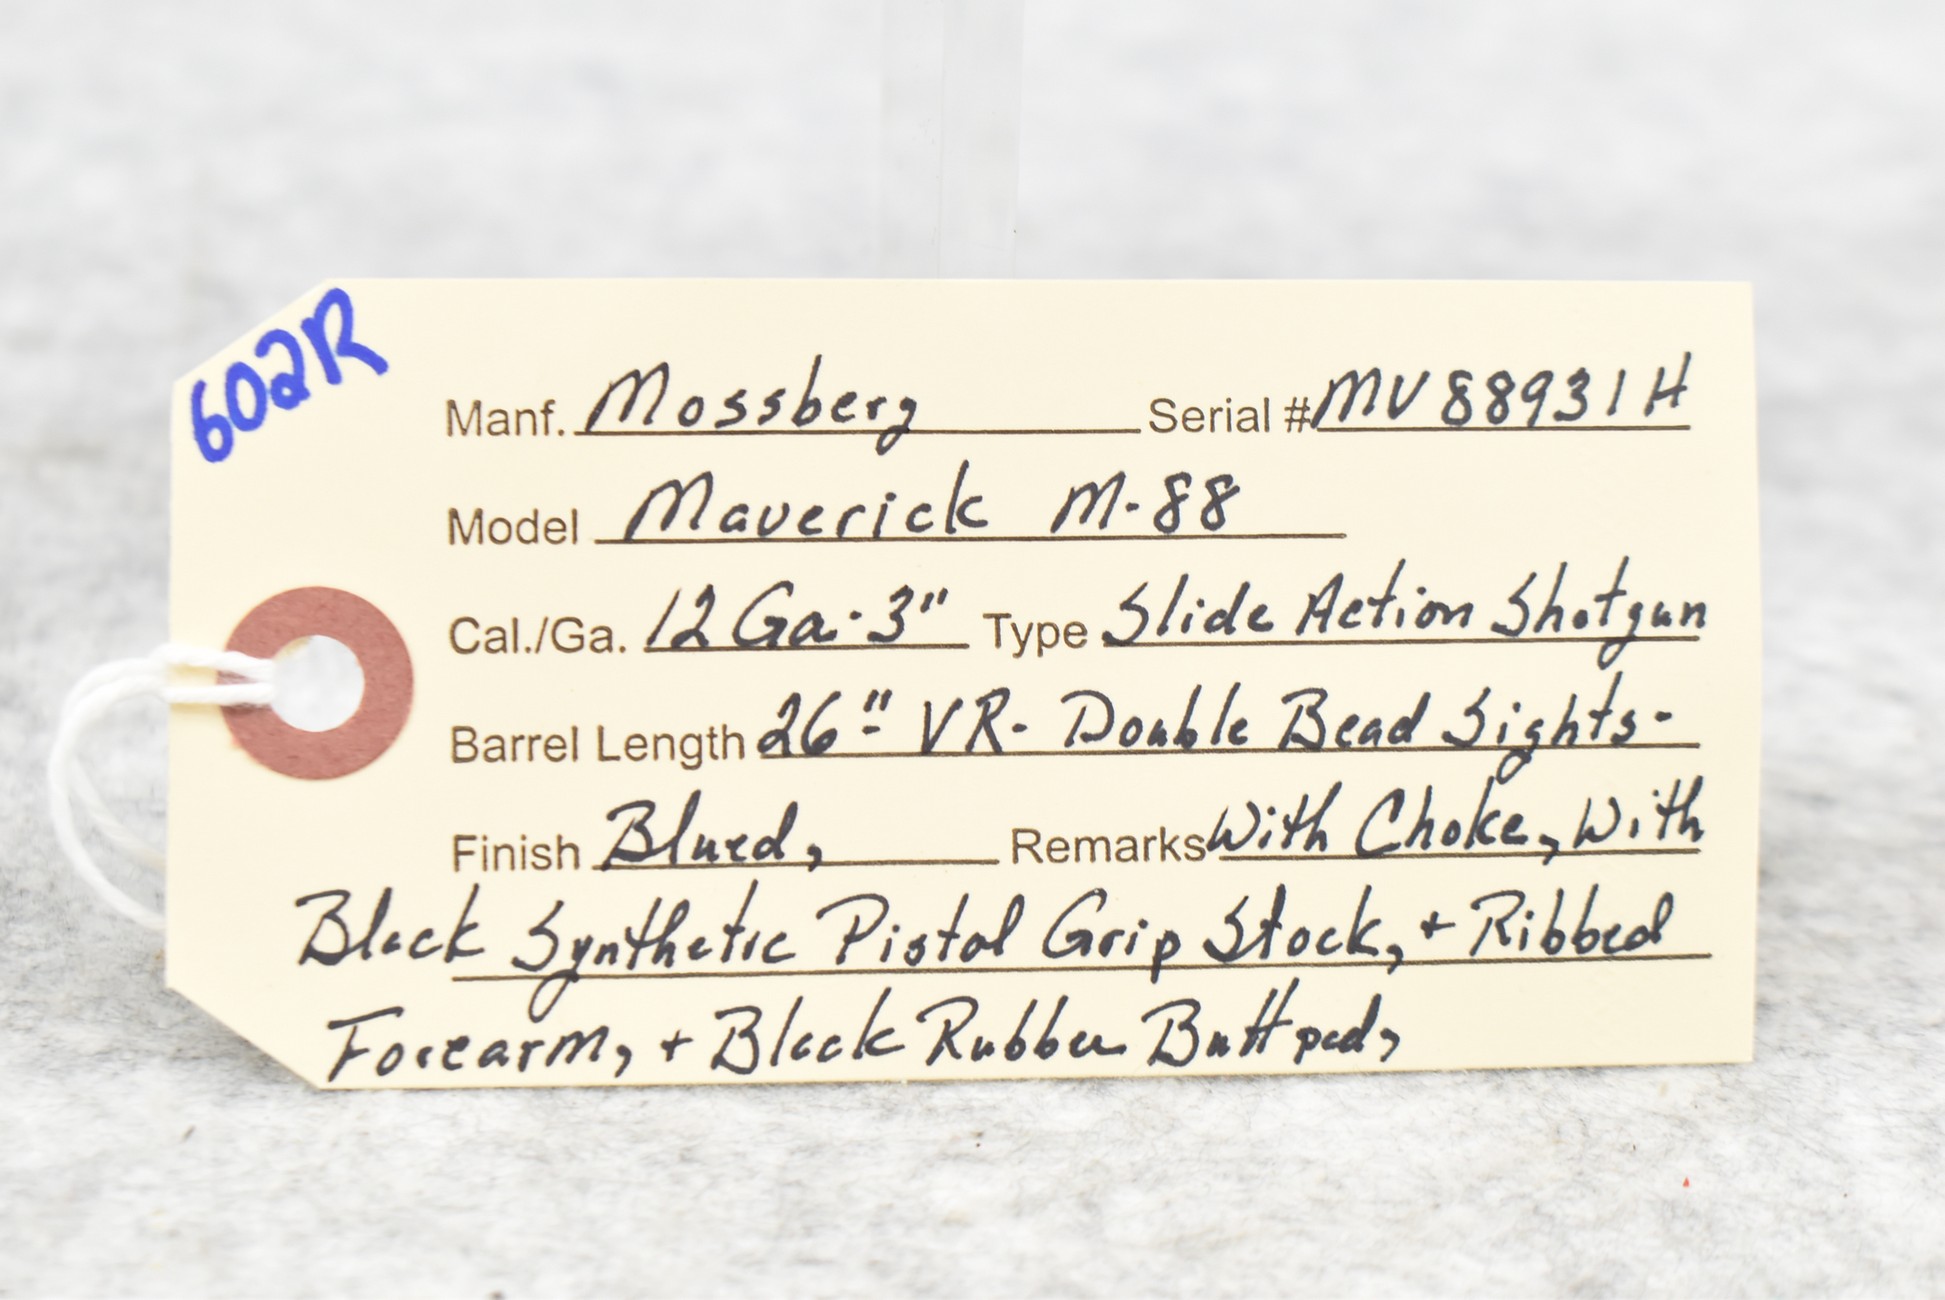 602R
Manf. Mossberg Serial # MV88931H
Model Maverick M-88
Cal./Ga. 12 Ga. 3" Type Slide Action Shotgun
Barrel Length 26" VR- Double Bead Sights-
Finish Blued, Remarks With Choke, With
Black Synthetic Pistol Grip Stock, + Ribbed
Forearm, + Black Rubber Buttpad,